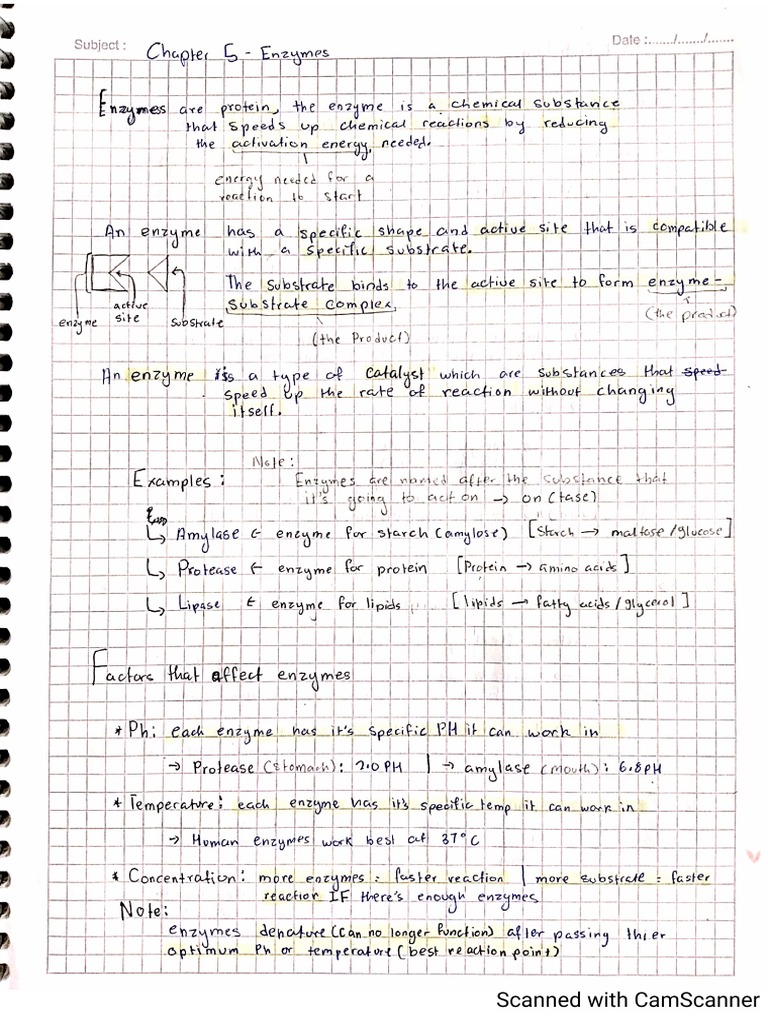 Subject :
Chapter 5 - Enzymes
Date :....../......./.......
Enzymes are protein, the enzyme is a chemical substance
that speeds up chemical reactions by reducing
the activation energy needed.
energy needed for a
reaction to start
An enzyme has a specific shape and active site that is compatible
with a specific substrate.
The substrate binds to the active site to form enzyme-
substrate complex
(the product)
(the product)
active
site
enzyme
substrate
An enzyme is a type of catalyst which are substances that speed
speed up the rate of reaction without changing
itself.
Note:
Examples: Enzymes are named after the substance that
it's going to act on → on (tase)
↳ Amylase ← enzyme for starch (amylose) [Starch → maltose/glucose]
↳ Protease ← enzyme for protein [Protein → amino acids]
↳ Lipase ← enzyme for lipids [lipids → fatty acids/glycerol]
Factors that affect enzymes
* Ph: each enzyme has it's specific PH it can work in
→ Protease (stomach): 2.0 PH | → amylase (mouth): 6.8 PH
* Temperature: each enzyme has it's specific temp it can work in
→ Human enzymes work best at 37°C
* Concentration: more enzymes = faster reaction | more substrate = faster
reaction IF there's enough enzymes
Note:
enzymes denature (can no longer function) after passing thier
optimum Ph or temperature (best reaction point)
Scanned with CamScanner